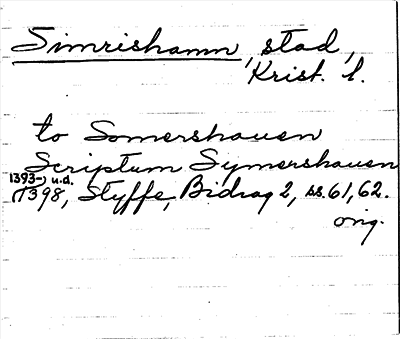 Simrishamn, stad,
Krist. l.
to Somershauen
Scriptum Symershauen
1393-, u.d.
(1398, Styffe, Bidrag 2, ss. 61, 62.
orig.